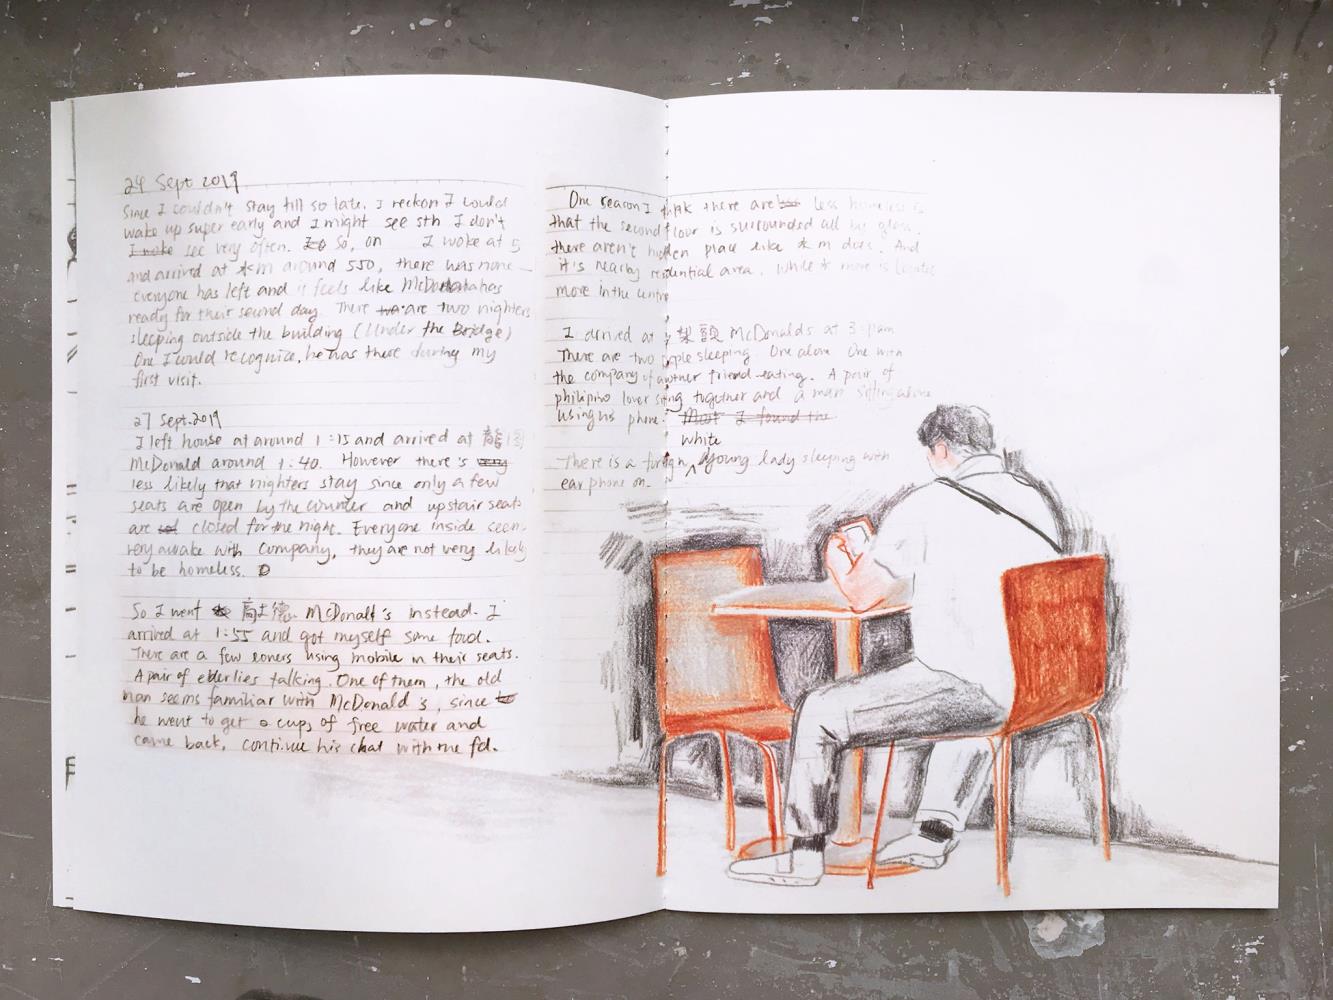 24 Sept 2019
Since I couldn't stay till so late, I reckon I could
wake up super early and I might see sth I don't
see very often. So, on I woke at 5
and arrived at 米m around 550, there was none
everyone has left and it feels like McDonald has
ready for their second day. There are two nighters
sleeping outside the building (Under the Bridge)
One I could recognize, he was there during my
first visit.
27 Sept. 2019
I left house at around 1:15 and arrived at
McDonald around 1:40. However there's
less likely that nighters stay since only a few
seats are open by the counter and upstair seats
are closed for the night. Everyone inside seem
very awake with company, they are not very likely
to be homeless.
So I went 高士德 McDonald's instead. I
arrived at 1:55 and got myself some food.
There are a few loners using mobile in their seats.
A pair of elderlies talking. One of them, the old
man seems familiar with McDonald's, since
he went to get 2 cups of free water and
came back, continue his chat with the fd.
One reason I think there are less homeless is
that the second floor is surrounded all by glass.
there aren't hidden place like 米m does. And
it's nearby residential area. While 米 more is located
more in the centre
I arrived at McDonalds at
There are two pple sleeping. One alone One with
the company of another friend eating. A pair of
philipino lover sitting together and a man sitting alone
using his phone. Most I found the
white
There is a foreign young lady sleeping with
earphone on.